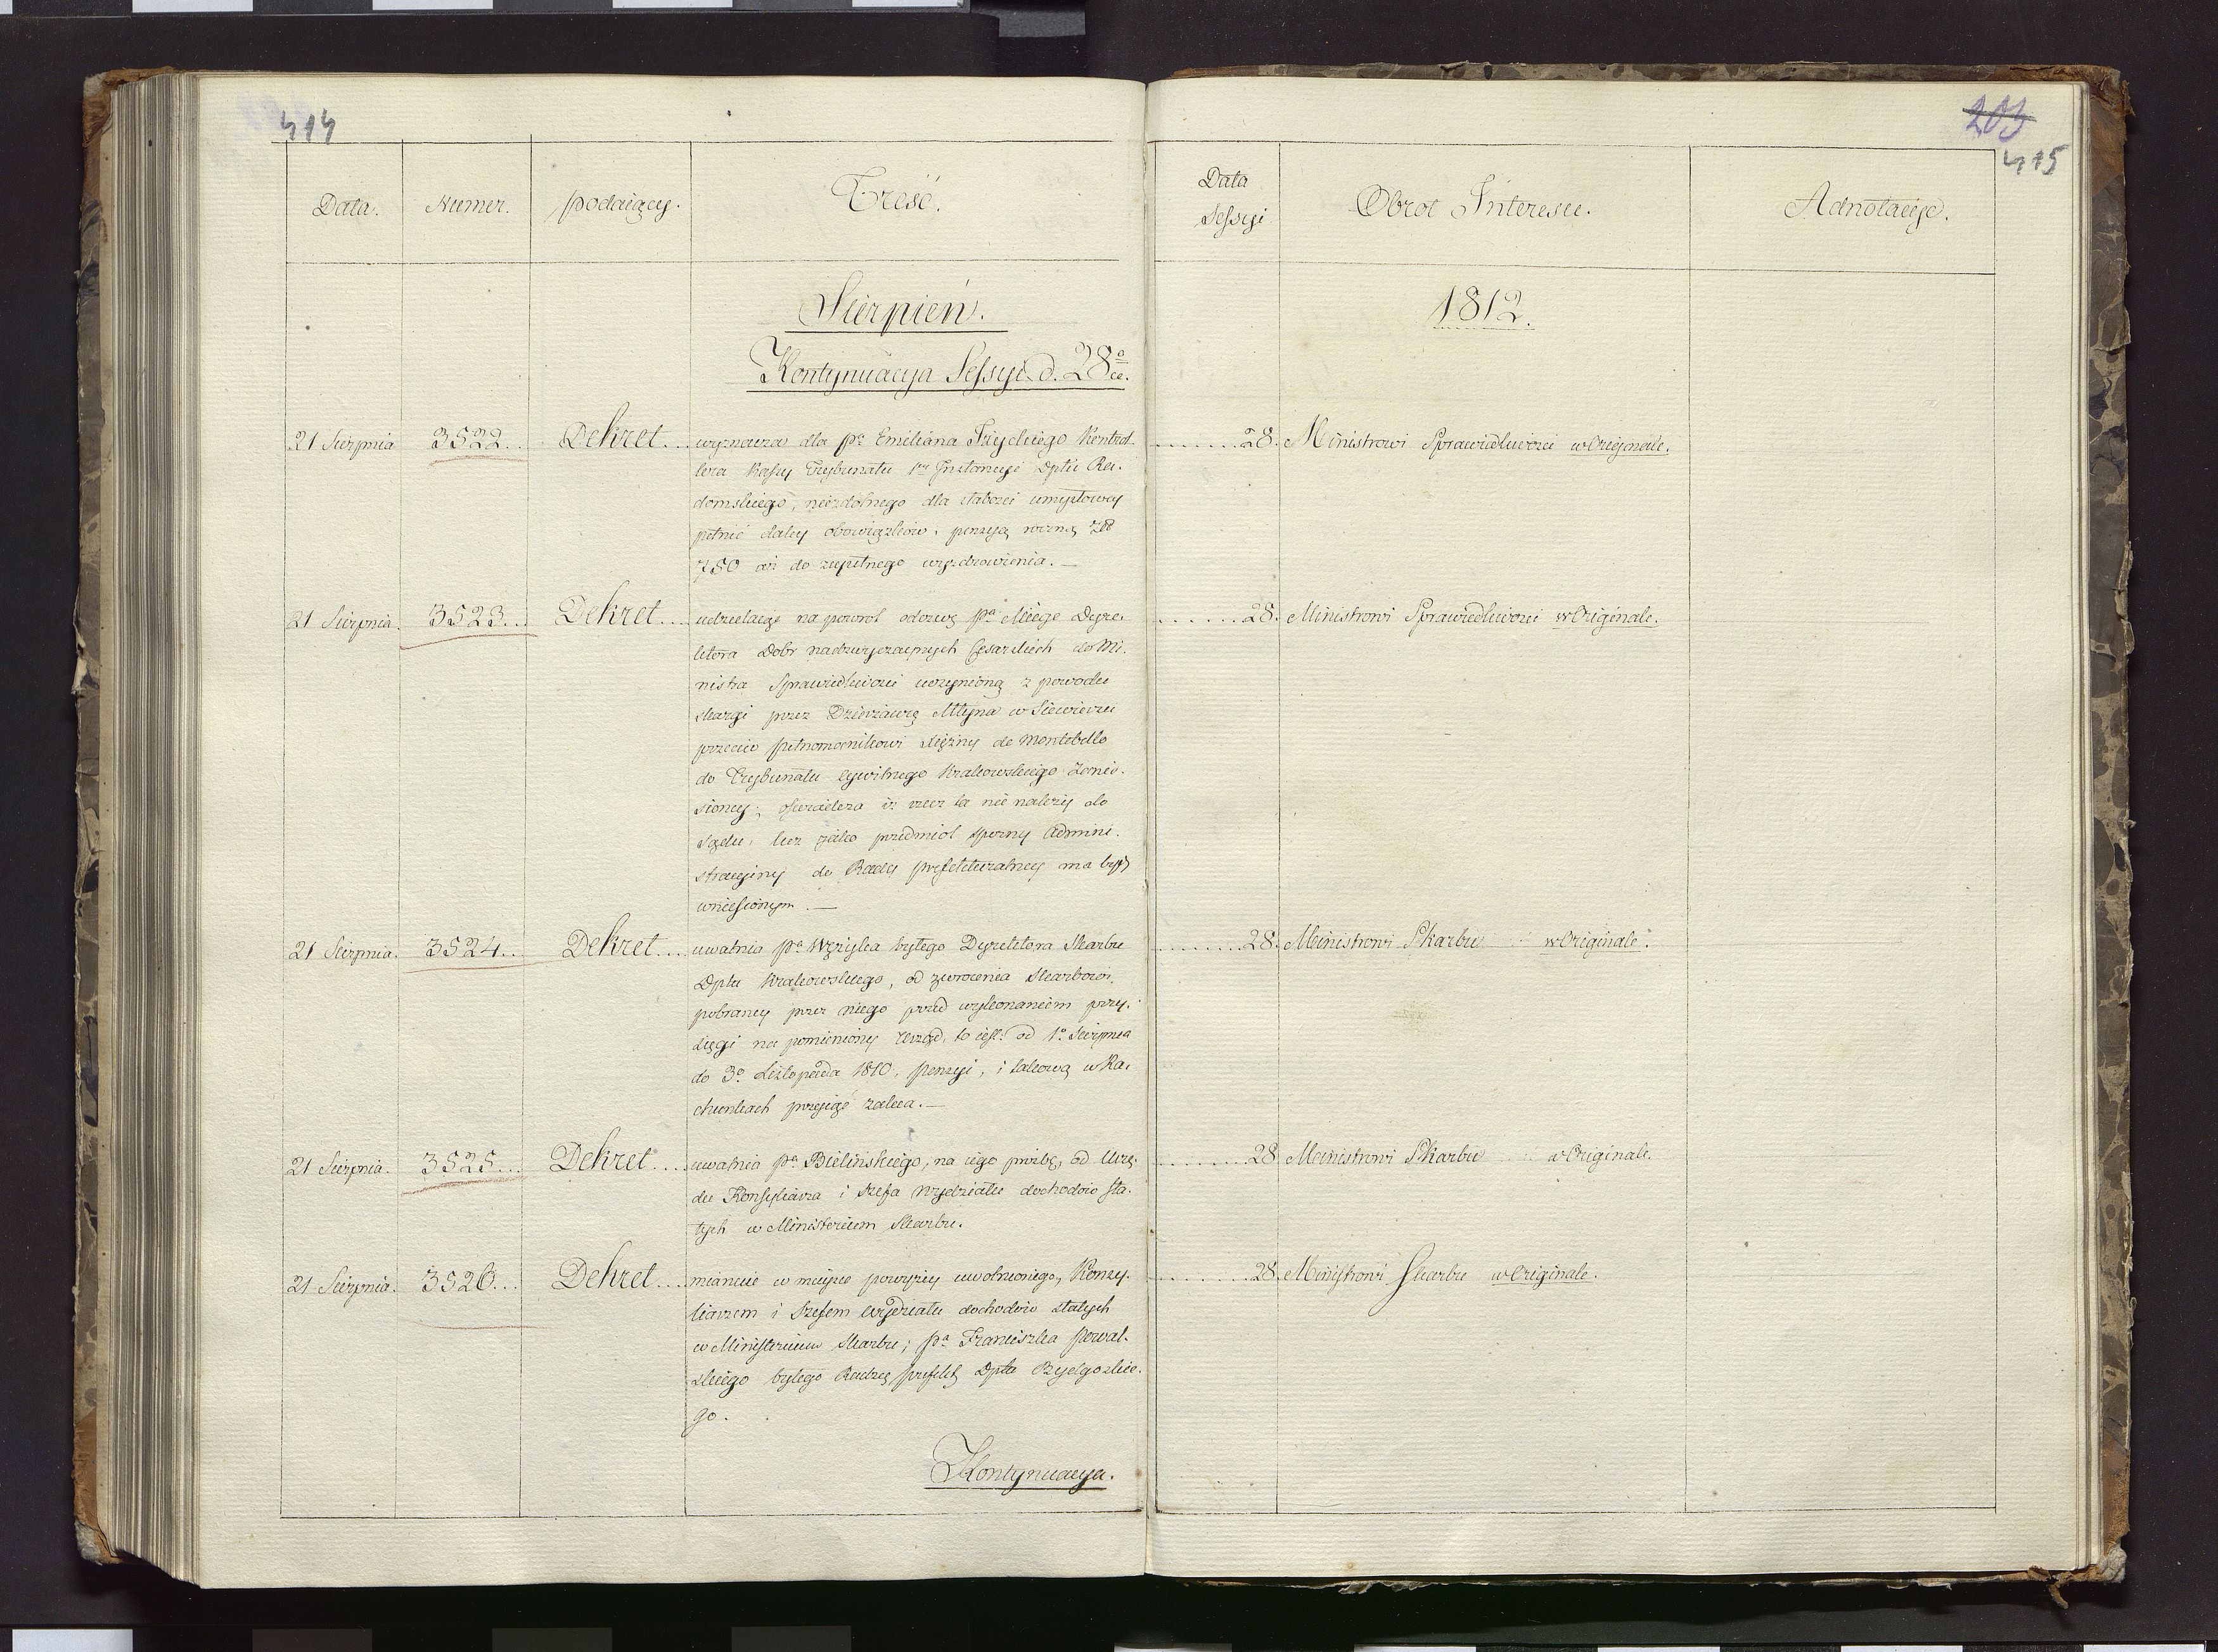 414
203
415
Data.
Numer.
podaiący.
Treść.
Data
Sessyi
Obrot Interesu.
Adnotacye.
Sierpień.
1812.
Kontynuacya Sessyi d. 28º ce.
21 Sierpnia 3522.. Dekret... wyznacza dla pª Emiliana Kontrol.
lera Kassy Trybunału 1ey Instancyi Dptu Ra.
domskiego, niezdolnego dla słabości umysłowey
pełnić daley obowiązków, pensyą roczną Zł
750 aż do zupełnego wyzdrowienia. —
........28. Ministrowi Sprawiedliwości w Originale.
21 Sierpnia. 3523... Dekret.... udzielaiąc na powrot odezwę pª Miege Dyre.
ktora Dobr nadzwyczaynych Cesarskich do Mi.
nistra Sprawiedliwości uczynioną z powodu
skargi przez Dzierżawcę Młyna w Siewierzu
przeciw pełnomocnikowi Xiężny de Montebello
do Trybunału cywilnego Krakowskiego zanie.
sioney; oświadcza iż rzecz ta nie należy do
Sądu, lecz iako przedmiot sporny Admini.
stracyiny do Rady prefekturalney ma bydź
wniesionym. —
.......28. Ministrowi Sprawiedliwości w Originale.
21 Sierpnia. 3524.. Dekret.... uwalnia pª byłego Dyrektora Skarbu
Dptu Krakowskiego, od zwrocenia Skarbowi,
pobraney przez niego przed wykonaniem przy.
sięgi na pomieniony Urząd, to iest: od 1º Sierpnia
do 3º Listopada 1810. pensyi, i takową w Ra.
chunkach przyiąć zaleca. —
........28. Ministrowi Skarbu w Originale.
21 Sierpnia. 3525... Dekret..... uwalnia pª Bielińskiego, na iego prośbę, od Urzę.
du Konsyliarza i Szefa Wydziału dochodow sta.
łych w Ministerium Skarbu.
........28 Ministrowi Skarbu w Originale.
21 Sierpnia. 3526... Dekret.... mianuie w mieysce powyżey uwolnionego, Konsy.
liarzem i Szefem Wydziału dochodow stałych
w Ministerium Skarbu; pª Franciszka Powal.
skiego byłego Radzcę prefekt. Dptu Bydgoskie.
go.
........28. Ministrowi Skarbu w Originale.
Kontynuacya.